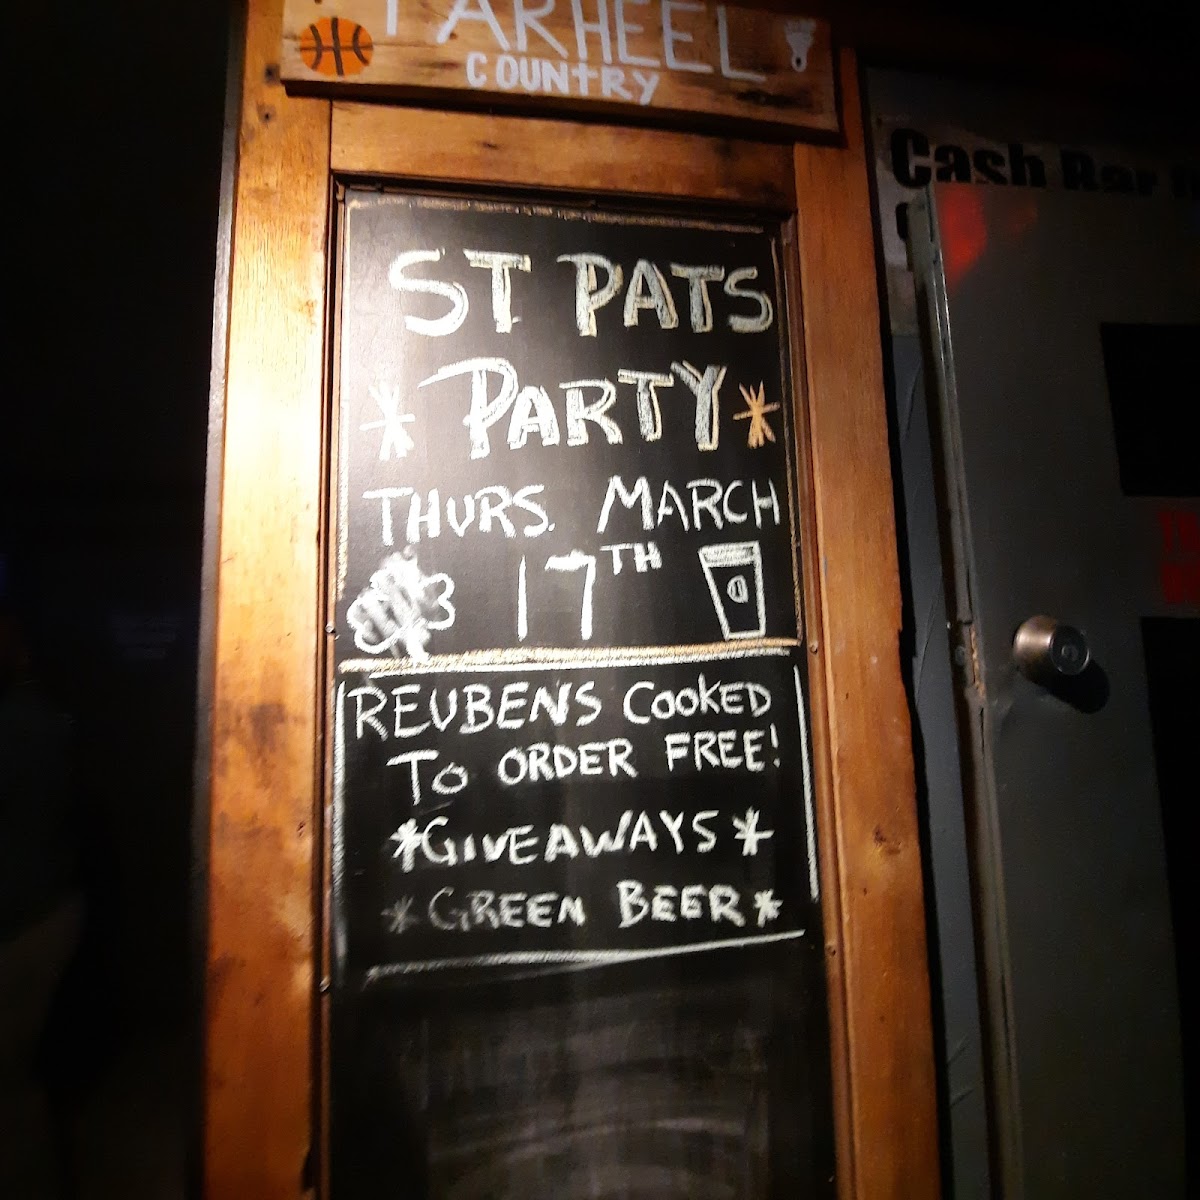 TARHEEL
COUNTRY
Cash Bar
ST PATS
PARTY
THURS. MARCH
17TH
REUBENS COOKED
TO ORDER FREE!
*GIVEAWAYS*
*GREEN BEER*